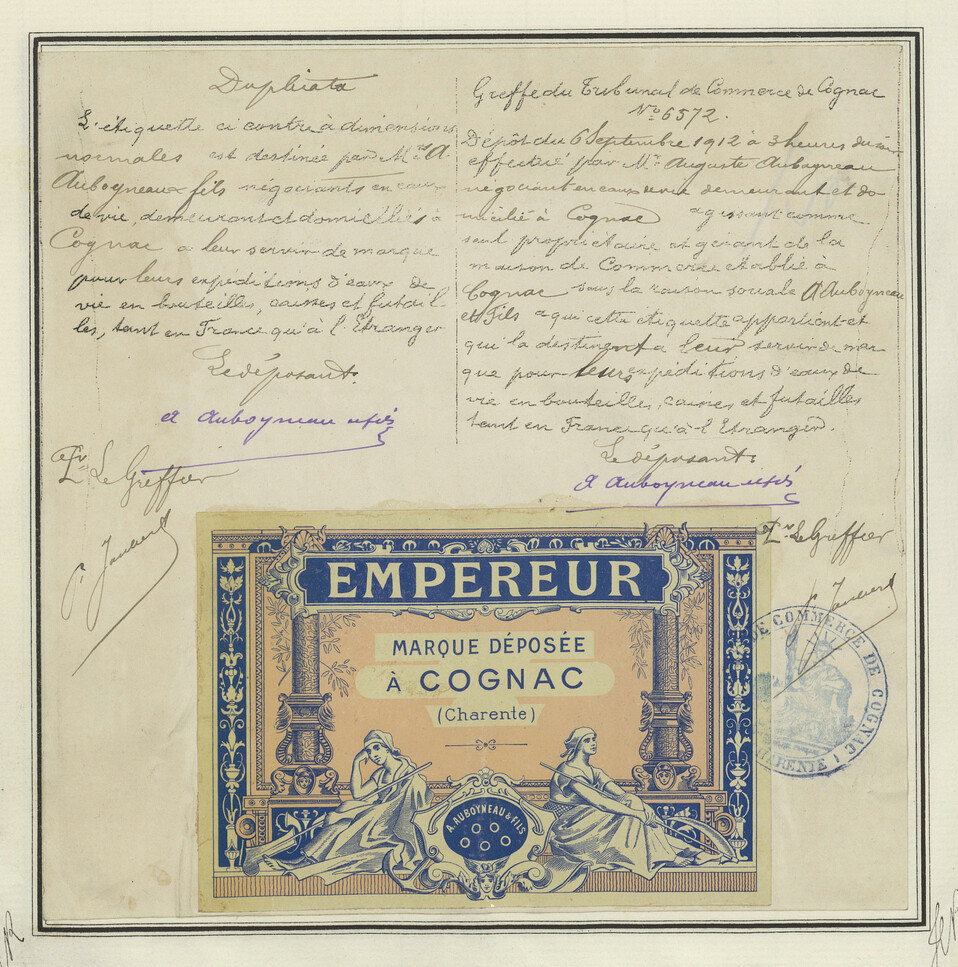 Duplicata
L'étiquette ci contre à dimensions
normales est destinée par Mrs A.
Auboyneau & fils négociants en eaux
de vie, demeurant et domiciliés à
Cognac a leur servir de marque
pour leurs expéditions d'eaux de
vie en bouteilles, caisses et futail
les, tant en France qu'à l'Etranger
Le déposant.
A Auboyneau et fils
Le Greffier
Greffe du Tribunal de Commerce de Cognac
No 6572.
Dépôt du 6 Septembre 1912 à 3 heures du soir
effectué par Mr Auguste Auboyneau
négociant en eaux de vie demeurant et do-
micilié à Cognac agissant comme
seul propriétaire et gérant de la
maison de Commerce établie à
Cognac sous la raison sociale A Auboyneau
et Fils a qui cette étiquette appartient et
qui la destinent a leur servir de mar
que pour leurs expéditions d'eaux de
vie en bouteilles, caisses et futailles
tant en France qu'à l'Etranger.
Le déposant.
A Auboyneau et fils
Le Greffier
EMPEREUR
MARQUE DÉPOSÉE
À COGNAC
(Charente)
A. AUBOYNEAU & FILS
DE COMMERCE DE COGNAC
CHARENTE